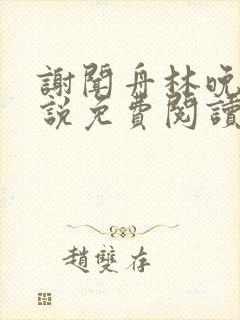 謝聞舟林晚
說免費閱讀
趙雙存